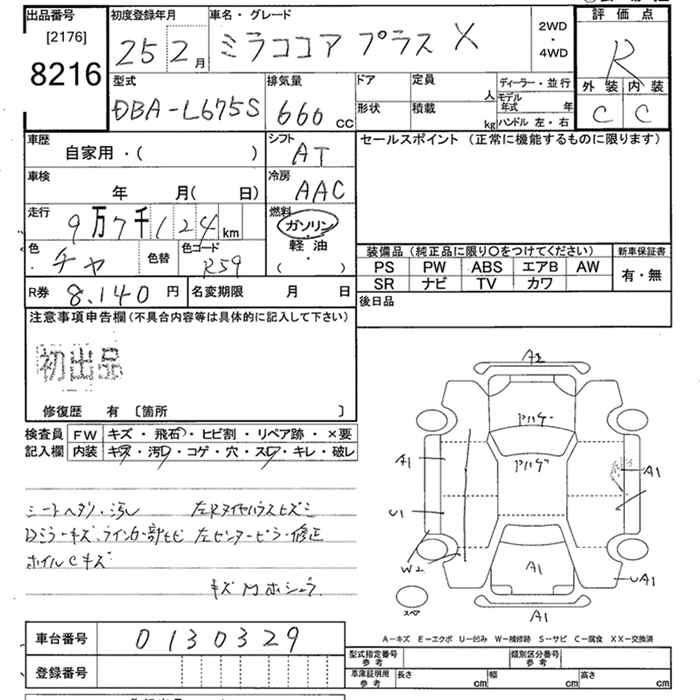 出品番号
[2176]
8216
初度登録年月
25 2月
車名・グレード
ミラココア プラス X
2WD
・
4WD
評価点
R
外装 内装
C C
型式
DBA-L675S
排気量
660 CC
ドア
形状
定員
人
積載
kg
ディーラー・並行
モデル年式 年
ハンドル 左・右
車歴
自家用・( )
シフト
AT
セールスポイント (正常に機能するものに限ります)
車検
年 月( 日)
冷房
AAC
走行
9万7千124km
燃料
ガソリン
軽油
( ・ )
色
チャ
色替
色コード
R59
装備品 (純正品に限り○をつけてください)
PS PW ABS エアB AW
SR ナビ TV カワ
新車保証書
有・無
R券 8,140 円
名変期限 月 日
後日品
注意事項申告欄 (不具合内容等は具体的に記入して下さい)
初出品
修復歴 有 〔箇所 〕
検査員記入欄
FW キズ・飛石・ヒビ割・リペア跡・×要
内装 キズ・汚レ・コゲ・穴・スレ・キレ・破レ
シートヘタリ・汚レ
ホイルCキズ
A2
A1
A1
U1
W2
A1
UA1
A1
スペア
A-キズ E-エクボ U-凹み W-補修跡 S-サビ C-腐食 XX-交換済
車台番号 0130329
登録番号
型式指定番号 参考
類別区分番号 参考
車庫証明用 参考
長さ cm
幅 cm
高さ cm